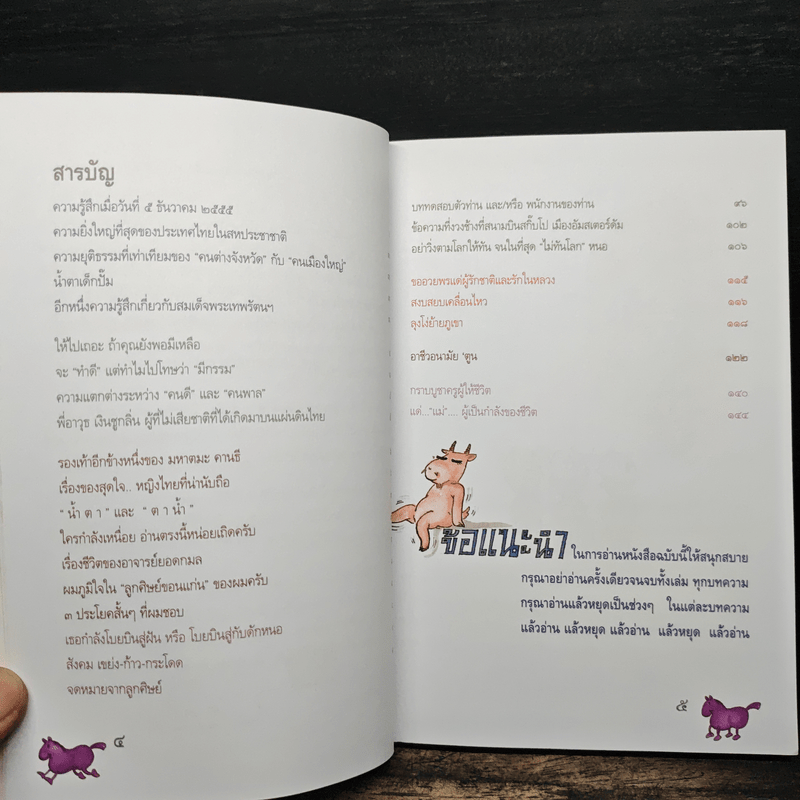 สารบัญ
ความรู้สึกเมื่อวันที่ ๕ ธันวาคม ๒๕๕๕
ความยิ่งใหญ่ที่สุดของประเทศไทยในสหประชาชาติ
ความยุติธรรมที่เท่าเทียมของ "คนต่างจังหวัด" กับ "คนเมืองใหญ่"
น้ำตาเด็กปั๊ม
อีกหนึ่งความรู้สึกเกี่ยวกับสมเด็จพระเทพรัตนฯ
ให้ไปเถอะ ถ้าคุณยังพอมีเหลือ
จะ "ทำดี" แต่ทำไมไปโทษว่า "มีกรรม"
ความแตกต่างระหว่าง "คนดี" และ "คนพาล"
พี่อาวุธ เงินชูกลิ่น ผู้ที่ไม่เสียชาติที่ได้เกิดมาบนแผ่นดินไทย
รองเท้าอีกข้างหนึ่งของ มหาตมะ คานธี
เรื่องของสุดใจ.. หญิงไทยที่น่านับถือ
" น้ำ ต า " และ " ต า น้ำ "
ใครกำลังเหนื่อย อ่านตรงนี้หน่อยเถิดครับ
เรื่องชีวิตของอาจารย์ยอดกมล
ผมภูมิใจใน "ลูกศิษย์ขอนแก่น" ของผมครับ
๓ ประโยคสั้นๆ ที่ผมชอบ
เธอกำลังโบยบินสู่ฝัน หรือ โบยบินสู่กับดักหนอ
สังคม เขย่ง-ก้าว-กระโดด
จดหมายจากลูกศิษย์
๔
บททดสอบตัวท่าน และ/หรือ พนักงานของท่าน ๙๖
ข้อความที่งวงช้างที่สนามบินสกิ๊บโป เมืองอัมสเตอร์ดัม ๑๐๒
อย่าวิ่งตามโลกให้ทัน จนในที่สุด "ไม่ทันโลก" หนอ ๑๐๖
ขออวยพรแด่ผู้รักชาติและรักในหลวง ๑๑๕
สงบสยบเคลื่อนไหว ๑๑๖
ลุงโง่ย้ายภูเขา ๑๑๘
อาชีวอนามัย 'ตูน ๑๒๒
กราบบูชาครูผู้ให้ชีวิต ๑๔๐
แด่..."แม่".... ผู้เป็นกำลังของชีวิต ๑๔๔
ข้อแนะนำ ในการอ่านหนังสือฉบับนี้ให้สนุกสบาย
กรุณาอย่าอ่านครั้งเดียวจนจบทั้งเล่ม ทุกบทความ
กรุณาอ่านแล้วหยุดเป็นช่วงๆ ในแต่ละบทความ
แล้วอ่าน แล้วหยุด แล้วอ่าน แล้วหยุด แล้วอ่าน
๕